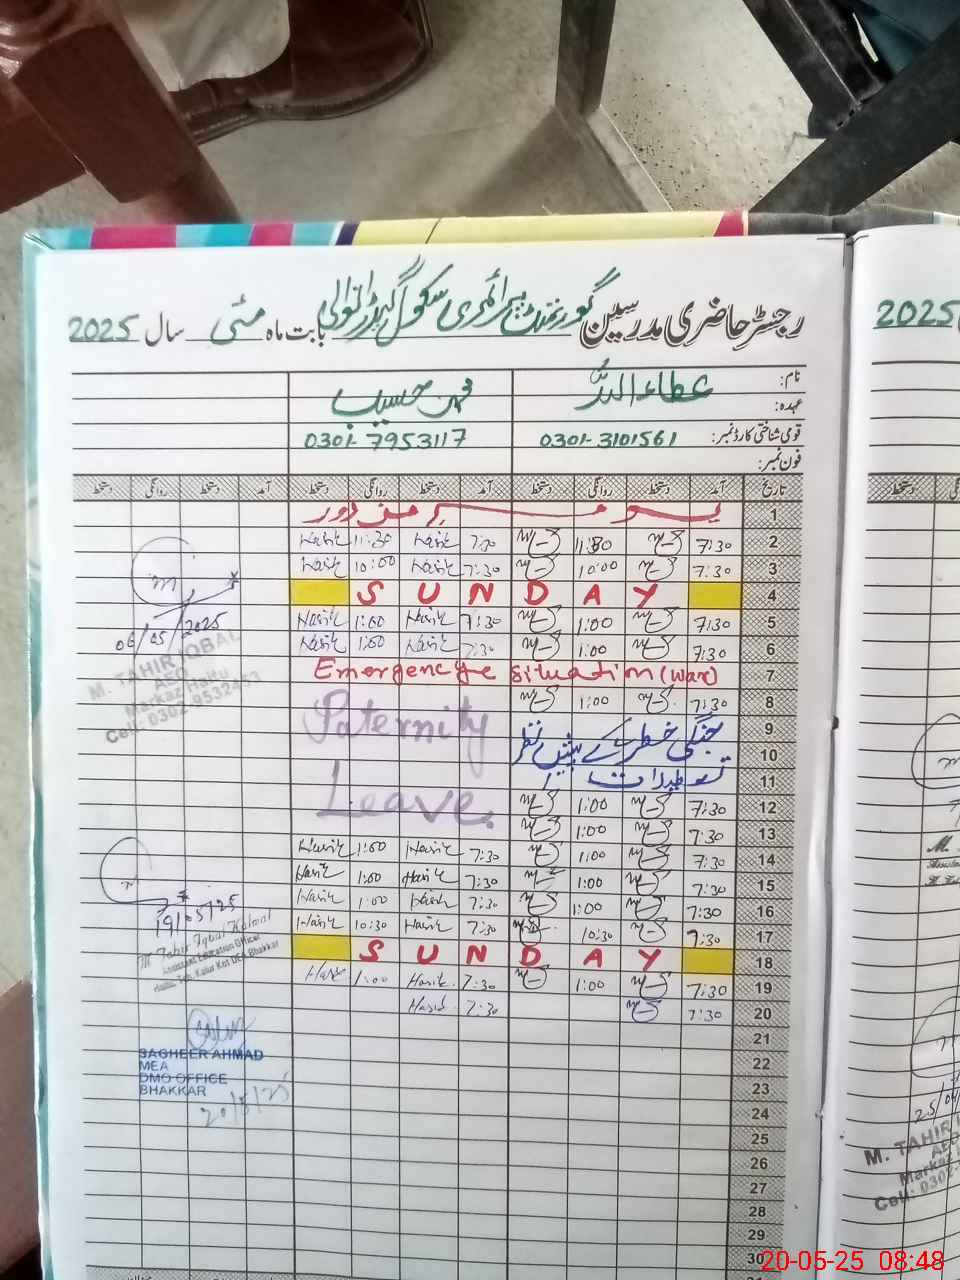 رجسٹر حاضری مدرسین گورنمنٹ پرائمری سکول بابت ماہ مئی سال 2025
2025
نام: عطاء اللہ محمد حسیب
عہدہ:
قومی شناختی کارڈ نمبر: 0301-3101561 0301-7953117
فون نمبر:
تاریخ آمد دستخط روانگی دستخط آمد دستخط روانگی دستخط آمد دستخط روانگی دستخط
1 یوم مزدور
2 7:30 11:30 7:30 Hasib 11:30 Hasib
3 7:30 10:00 7:30 Hasib 10:00 Hasib
4 SUNDAY
5 7:30 1:00 7:30 Hasib 1:00 Hasib
6 7:30 1:00 7:30 Hasib 1:00 Hasib
7 Emergency Situation (war)
8 7:30 1:00
Paternity
Leave.
9 جنگی خطرے کے پیش نظر
10
11 تعطیلات
12 7:30 1:00
13 7:30 1:00
14 7:30 1:00 7:30 Hasib 1:00 Hasib
15 7:30 1:00 7:30 Hasib 1:00 Hasib
16 7:30 1:00 7:30 Hasib 1:00 Hasib
17 7:30 10:30 7:30 Hasib 10:30 Hasib
18 SUNDAY
19 7:30 1:00 7:30 Hasib 1:00 Hasib
20 7:30 7:30 Hasib
21
22
23
24
25
26
27
28
29
30
06/05/2025
M. TAHIR IQBAL
AEO
Markaz Haitu
Cell: 0302-9532453
19/05/25
M Tahir Iqbal Kalmal
Assistant Education Officer
SAGHEER AHMAD
MEA
DMO OFFICE
BHAKKAR
20/5/25
25/04
M. TAHIR
AEO
Markaz
Cell: 0302-
20-05-25 08:48